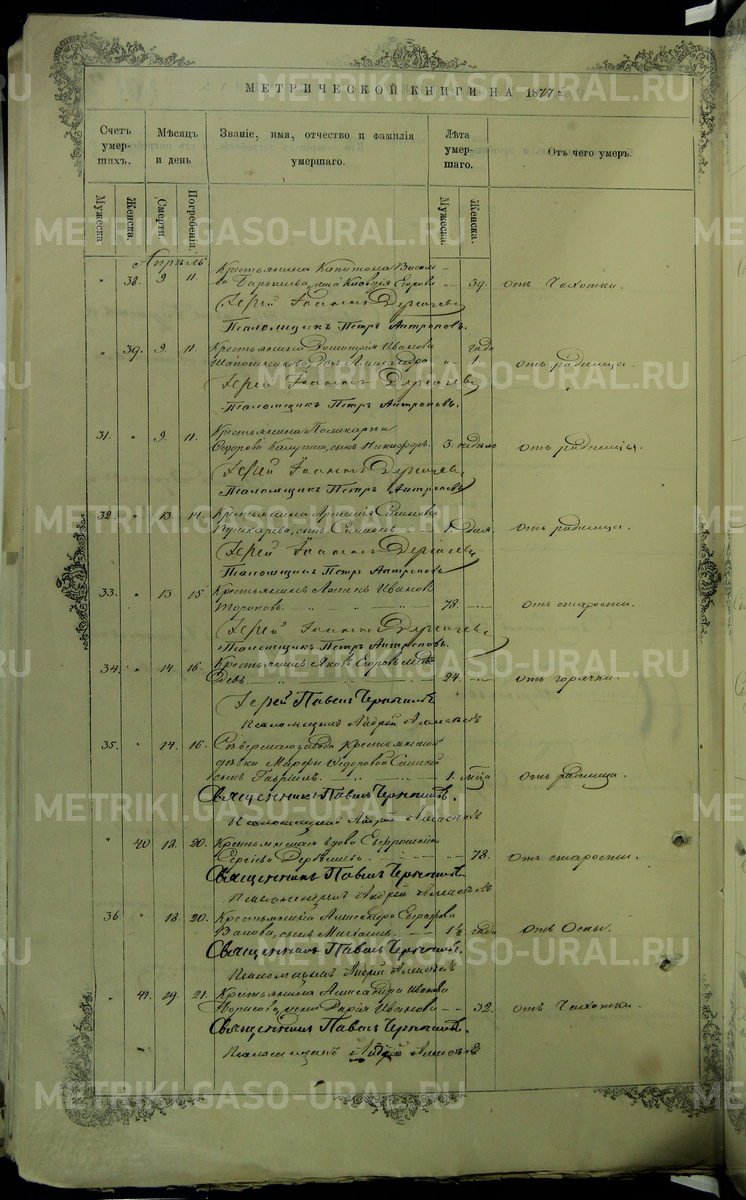 МЕТРИЧЕСКОЙ КНИГИ НА 1877 г
Счетъ умер- шихъ.
Мѣсяцъ и день
Званіе, имя, отчество и фамилія умершаго.
Лѣта умер- шаго.
Отъ чего умеръ.
Мужеска.
Женска.
Смерти.
Погребенія.
Мужеска.
Женска.
Апрѣль
" 38. 9 11. Крестьянина Капитона
жена Клавдія Егорова 39. отъ Чахотки.
Іерей Іоаннъ Дергачевъ
Псаломщикъ Петръ Антроповъ.
" 39. 9 11. Крестьянина Димитрія Иванова года
дочь Александра 1. отъ родимца.
Іерей Іоаннъ Дергачевъ
Псаломщикъ Петръ Антроповъ.
31. " 9. 11. Крестьянина Поликарпа
Ѳедорова сынъ Никифоръ. 3. недѣль отъ родимца.
Іерей Іоаннъ Дергачевъ
Псаломщикъ Петръ Антроповъ
32. " 13 14. Крестьянина
сынъ Симеонъ дня. отъ родимца.
Іерей Іоаннъ Дергачевъ
Псаломщикъ Петръ Антроповъ
33. " 13 15. Крестьянинъ Иванов
Тороповъ. 78. отъ старости.
Іерей Іоаннъ Дергачевъ
Псаломщикъ Петръ Антроповъ.
34. " 14. 16. Крестьянинъ Яковъ Егоровъ
24. отъ горячки.
Іерей Павелъ
Псаломщикъ Андрей
35. " 14. 16. Сѣверскаго завода Крестьянской
дѣвки Марѳы Ѳедоровой
сынъ Гавріилъ. 1. мѣсяца отъ родимца.
Священникъ Павелъ
Псаломщикъ Андрей
" 40 18. 20. Крестьянская вдова Евфросинія
Сергіева 78. отъ старости.
Священникъ Павелъ
Псаломщикъ Андрей
36 " 18. 20. Крестьянина Александра
сынъ Михаилъ 1½ года отъ Оспы.
Священникъ Павелъ
Псаломщикъ Андрей
" 41. 19. 21. Крестьянина Александра Иванова
Борисова, жена Дарія Иванова 32. отъ Чахотки.
Священникъ Павелъ
Псаломщикъ Андрей
METRIKI.GASO-URAL.RU
METRIKI.GASO-URAL.RU
METRIKI.GASO-URAL.RU
METRIKI.GASO-URAL.RU
METRIKI.GASO-URAL.RU
METRIKI.GASO-URAL.RU
METRIKI.GASO-URAL.RU
METRIKI.GASO-URAL.RU